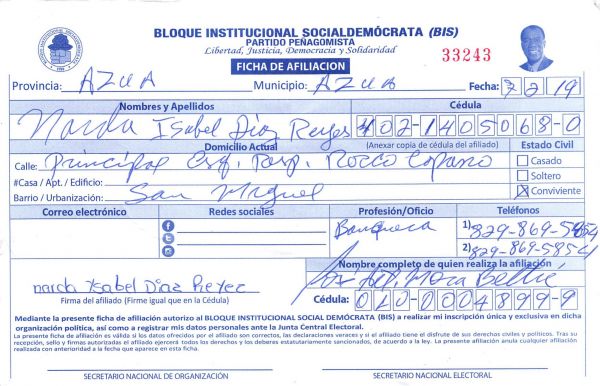 BLOQUE INSTITUCIONAL SOCIALDEMÓCRATA (BIS)
PARTIDO PEÑAGOMISTA
Libertad, Justicia, Democracia y Solidaridad
33243
FICHA DE AFILIACION
Provincia: AZUA Municipio: AZUA Fecha: 2 2 19
Nombres y Apellidos Cédula
Narda Isabel Diaz Reyes 402-1405068-0
Domicilio Actual (Anexar copia de cédula del afiliado) Estado Civil
Calle: Principal Esq. Prosp. Rocco Capano Casado
#Casa / Apt. / Edificio: Soltero
Barrio / Urbanización: San Miguel Conviviente
Correo electrónico Redes sociales Profesión/Oficio Teléfonos
Banquera 1) 829-869-5854
2) 829-869-5854
Nombre completo de quien realiza la afiliación
narda Ysabel Diaz Reyez
Firma del afiliado (Firme igual que en la Cédula) Cédula: 010-0004899-9
Mediante la presente ficha de afiliación autorizo al BLOQUE INSTITUCIONAL SOCIAL DEMÓCRATA (BIS) a realizar mi inscripción única y exclusiva en dicha
organización política, así como a registrar mis datos personales ante la Junta Central Electoral.
La presente ficha de afiliación es válida si los datos ofrecidos por el afiliado son correctos, las declaraciones veraces y si el afiliado tiene el disfrute de sus derechos civiles y políticos. Tras su
recepción, sello y firmas autorizadas el afiliado ejercerá todos los derechos y los deberes estatutariamente sancionados, de acuerdo a la ley. La presente afiliación anula cualquier afiliación
realizada con anterioridad a la fecha que aparece en esta ficha.
SECRETARIO NACIONAL DE ORGANIZACIÓN SECRETARIO NACIONAL ELECTORAL